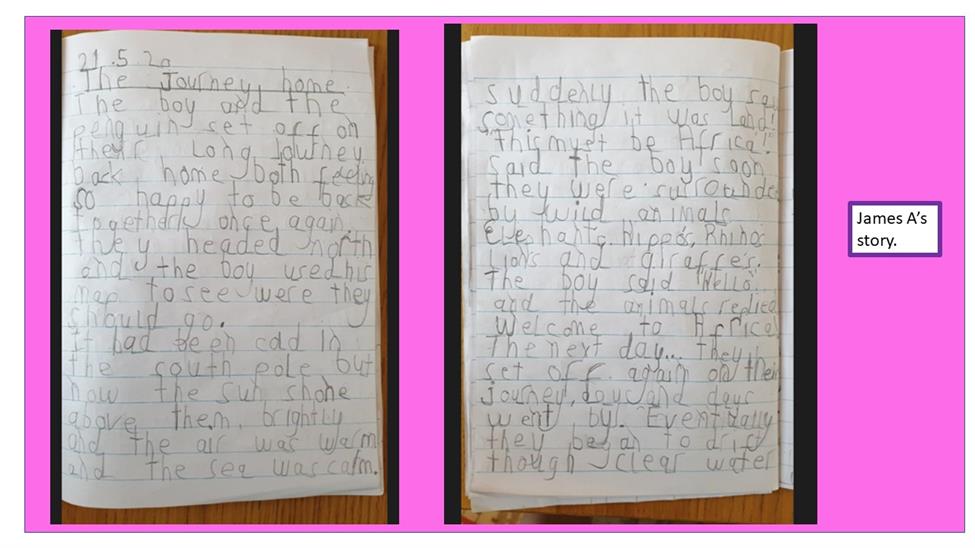 21.5.20
The Journey home.
The boy and the
penguin set off on
their Long Journey
back home both feeling
so happy to be back
togetherly once again.
they headed north
and the boy used his
map to see were they
should go.
It had been cold in
the south pole but
now the sun shone
above them brightly
and the air was warm
and the sea was calm.
suddenly the boy saw
something it was Land!
"this must be Africa!"
said the boy soon
they were surrounded
by wild animals
Elephants, Hippo's, Rhino's
Lions and giraffe's.
The boy said "Hello"
and the animals replied
Welcome to Africa
The next day... They then
set off again on their
journey, days and days
went by. Eventually
they began to drift
though clear water
James A's
story.